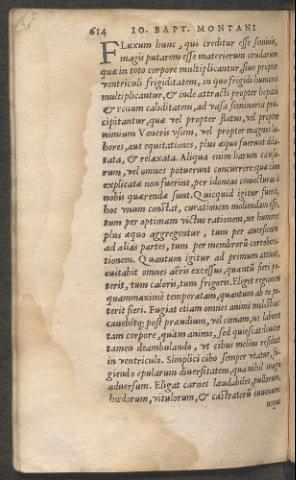 614 IO. BAPT. MONTANI
FLuxum hunc, qui creditur esse seminis,
magis putarem esse materierum crudarum
quæ in toto corpore multiplicantur, siue propter
ventriculi frigiditatem, in quo frigidi humores
multiplicantur, & inde attracti propter hepatis
& renum caliditatem, ad vasa seminaria præ-
cipitantur, quæ vel propter flatus, vel propter
nimium Veneris vsum, vel propter magnos la-
bores, aut equitationes, plus æquo fuerunt dila-
tata, & relaxata. Aliqua enim harum causa-
rum, vel omnes potuerunt concurrere: quæ cum
explicatæ non fuerint, per idoneas coniecturas à
nobis quærendæ sunt. Quicquid igitur fuerit,
hoc vnum constat, curationem moliendam esse,
tum per optimam victus rationem, ne humores
plus æquo aggregentur, tum per auersionem
ad alias partes, tum per membrorum corrobora-
tionem. Quantum igitur ad primum attinet,
euitabit omnes aëris excessus, quantum fieri po-
terit, tum caloris, tum frigoris. Eliget regionem
quammaximè temperatam, quantum ab eo po-
terit fieri. Fugiat etiam omnes animi molestias:
cauebitq; post prandium, vel cœnam, ne labores
tam corpore, quàm animo, sed quiescat: leuiter
tamen deambulando, vt cibus melius resideat
in ventriculo. Simplici cibo semper vtatur, fu-
giendo epularum diuersitatem, qua nihil magis
aduersum. Eligat carnes laudabiles, pullorum,
hœdorum, vitulorum, & castratorū iuuenum: